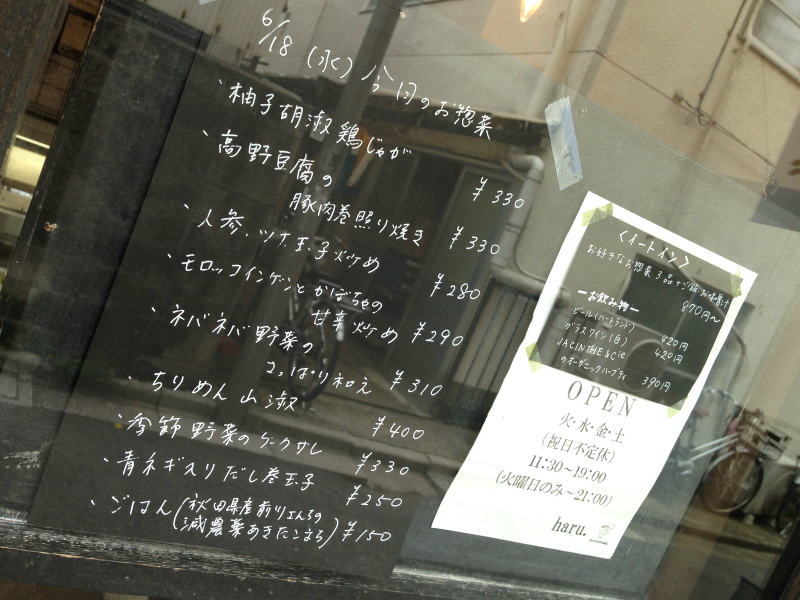 6/18 (水) 今日のお惣菜
・柚子胡淑鶏じゃが ¥330
・高野豆腐の
豚肉巻照り焼き ¥330
・人参・ツナ玉子炒め ¥280
・モロッコインゲンとかぼちゃの
甘辛炒め ¥290
・ネバネバ野菜の
さっぱり和え ¥310
・ちりめん山淑 ¥400
・季節野菜のケークサレ ¥330
・青ネギ入りだし巻玉子 ¥250
・ごはん(秋田県産前川さんちの
減農薬あきたこまち) ¥150
〈イートイン〉
お好きなお惣菜3品+ご飯・お味噌汁
870円〜
ーお飲み物ー
ビール(ハートランド) 420円
グラスワイン(白) 420円
JACINTHE & Cie
のオーガニックハーブティ 390円
OPEN
火・水・金・土
(祝日不定休)
11:30〜19:00
(火曜日のみ〜21:00)
haru.